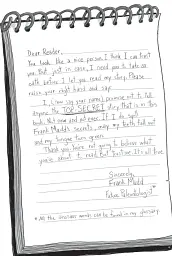 Dear Reader,
You look like a nice person I think I can trust
you. But just in case, I need you to take an
oath before I let you read my story. Please
raise your right hand and say:
I, (now say your name), promise not to tell
anyone the TOP SECRET story that is in this
book. Not now and not ever. If I do spill
Frank Mudd's secrets, may my teeth fall out
and my tongue turn green.
Thank you. You're not going to believe what
you're about to read. But trust me. It is true.
Sincerely,
Frank Mudd
Future Paleontologist*
*All the dinosaur words can be found in my glossary.